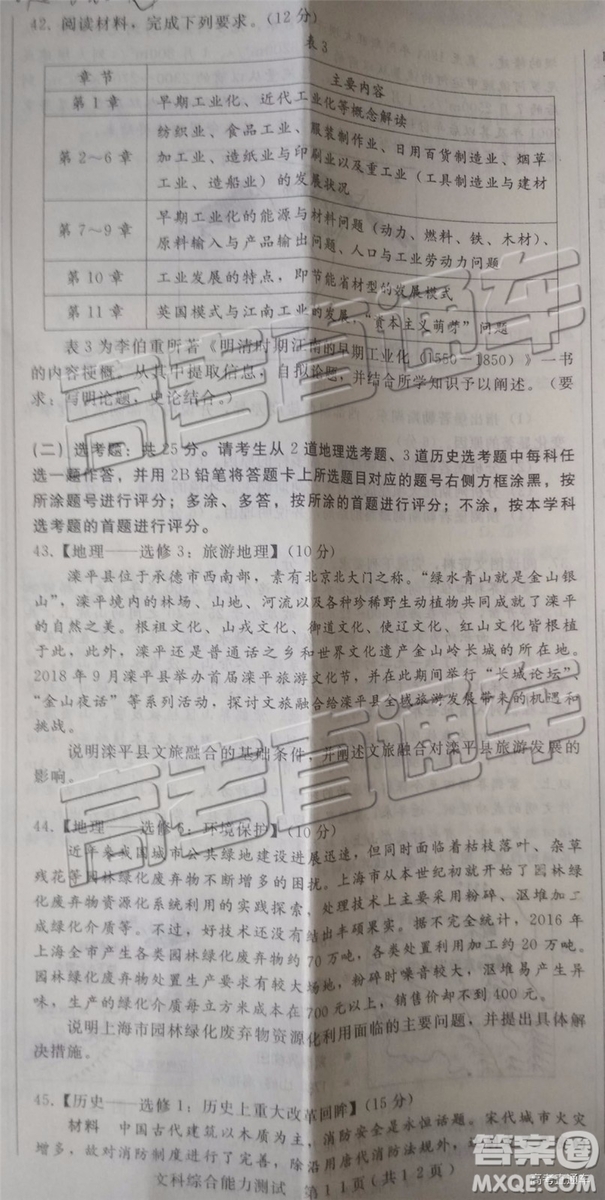 42. 阅读材料，完成下列要求。（12分）
表3
章节 主要内容
第1章 早期工业化、近代工业化等概念解读
第2～6章 纺织业、食品工业、服装制作业、日用百货制造业、烟草
加工业、造纸业与印刷业以及重工业（工具制造业与建材
工业、造船业）的发展状况
第7～9章 早期工业化的能源与材料问题（动力、燃料、铁、木材）、
原料输入与产品输出问题、人口与工业劳动力问题
第10章 工业发展的特点，即节能省材型的发展模式
第11章 英国模式与江南工业的发展，“资本主义萌芽”问题
表3为李伯重所著《明清时期江南的早期工业化（1550－1850）》一书
的内容梗概。从其中提取信息，自拟论题，并结合所学知识予以阐述。（要
求：写明论题，史论结合。）
(二) 选考题：共25分。请考生从2道地理选考题、3道历史选考题中每科任
选一题作答，并用2B铅笔将答题卡上所选题目对应的题号右侧方框涂黑，按
所涂题号进行评分；多涂、多答，按所涂的首题进行评分；不涂，按本学科
选考题的首题进行评分。
43.【地理——选修3：旅游地理】(10分)
滦平县位于承德市西南部，素有北京北大门之称。“绿水青山就是金山银
山”，滦平境内的林场、山地、河流以及各种珍稀野生动植物共同成就了滦平
的自然之美。根祖文化、山戎文化、御道文化、使辽文化、红山文化皆根植
于此，此外，滦平还是普通话之乡和世界文化遗产金山岭长城的所在地。
2018年9月滦平县举办首届滦平旅游文化节，并在此期间举行“长城论坛”、
“金山夜话”等系列活动，探讨文旅融合给滦平县全域旅游发展带来的机遇和
挑战。
说明滦平县文旅融合的基础条件，并阐述文旅融合对滦平县旅游发展的
影响。
44.【地理——选修6：环境保护】(10分)
近年来我国城市公共绿地建设进展迅速，但同时面临着枯枝落叶、杂草
残花等园林绿化废弃物不断增多的困扰。上海市从本世纪初就开始了园林绿
化废弃物资源化系统利用的实践探索，处理技术上主要采用粉碎、沤堆加工
成绿化介质等。不过，好技术还没有结出丰硕果实。据不完全统计，2016年
上海全市产生各类园林绿化废弃物约70万吨，各类处置利用加工约20万吨。
园林绿化废弃物处置生产要求有较大场地，粉碎时噪音较大，沤堆易产生异
味，生产的绿化介质每立方米成本在700元以上，销售价却不到400元。
说明上海市园林绿化废弃物资源化利用面临的主要问题，并提出具体解
决措施。
45.【历史——选修1：历史上重大改革回眸】(15分)
材料 中国古代建筑以木质为主，消防安全是永恒话题。宋代城市火灾
增多，故对消防制度进行了完善，除沿用唐代消防法规外，
文科综合能力测试 第11页(共12页)
高考直通车
高考直通车
高考直通车
答案圈
MXQE.COM
高考直通车